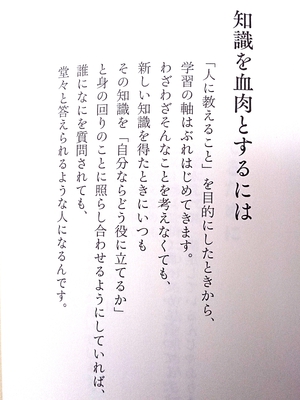 知識を血肉とするには
「人に教えること」を目的にしたときから、
学習の軸はぶれはじめてきます。
わざわざそんなことを考えなくても、
新しい知識を得たときにいつも
その知識を「自分ならどう役に立てるか」
と身の回りのことに照らし合わせるようにしていれば、
誰になにを質問されても、
堂々と答えられるような人になるんです。